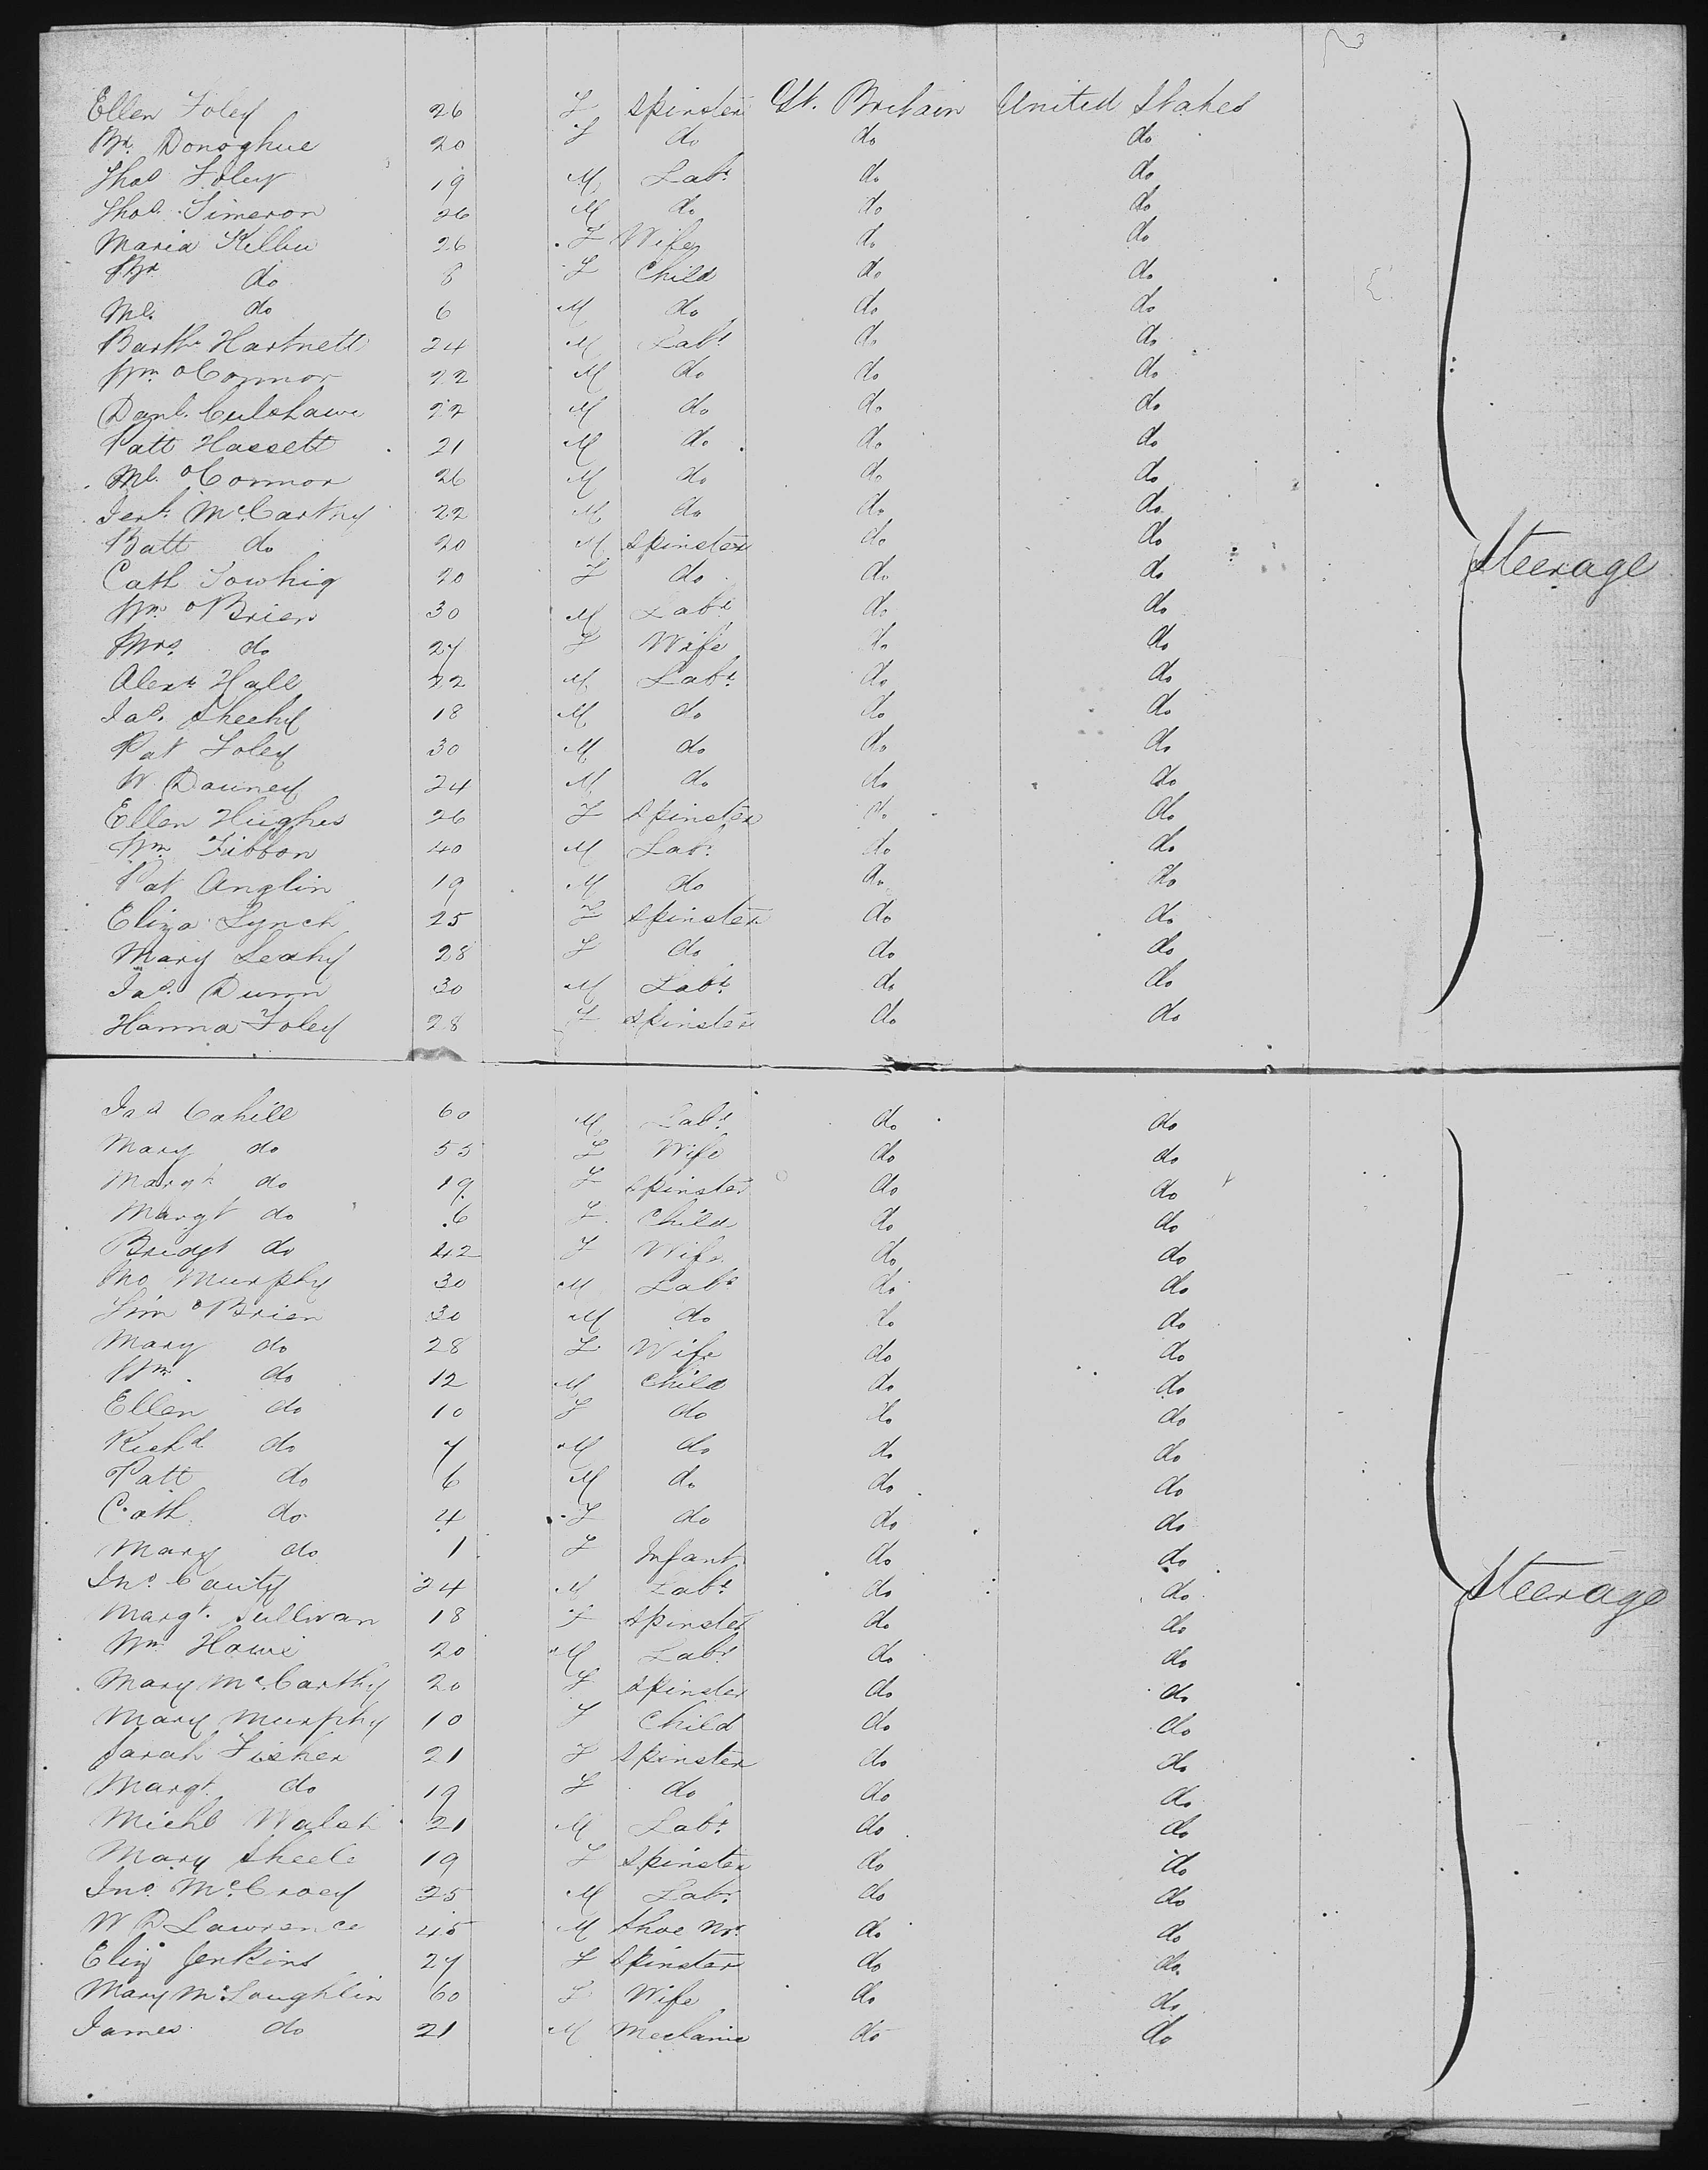 Ellen Foley 26 F Spinster Gt. Britain United States
Br. Donoghue 20 F do do do
Thos Foley 19 M Labr do do
Thos. Simeron 26 M do do do
Maria Killeu 26 F Wife do do
Br do 8 F Child do do
Ml. do 6 M do do do
Barth Hartnett 24 M Labr do do
Wm O'Connor 22 M do do do
Danl. Culshawe 22 M do do do
Patt Hassett 21 M do do do
Ml. O'Connor 26 M do do do
Jerh. McCartny 22 M do do do
Batt do 20 M Spinster do do
Cath Towhig 20 F do do do
Steerage
Wm O'Brien 30 M Labr do do
Mrs. do 27 F Wife do do
Alexr Hall 22 M Labr. do do
Jas. Sheehy 18 M do do do
Pat Foley 30 M do do do
W Dauney 24 M do do do
Ellen Hughes 26 F Spinster do do
Wm Fibbon 40 M Labr. do do
Pat Anglin 19 M do do do
Eliza Lynch 25 F Spinster do do
Mary Leahy 28 F do do do
Jas. Dunn 30 M Labr. do do
Hanna Foley 28 F Spinster do do
Jas Cahill 60 M Labr. do do
Mary do 55 F Wife do do
Margt do 19 F Spinster do do
Margt do 6 F Child do do
Bridgt do 42 F Wife do do
Mo Murphy 30 M Labr do do
Tim O'Brien 30 M do do do
Mary do 28 F Wife do do
Wm. do 12 M Child do do
Ellen do 10 F do do do
Richd do 7 M do do do
Patt do 6 M do do do
Cath do 4 F do do do
Mary do 1 F Infant do do
Jno. Cauty 24 M Labr do do
Steerage
Margt. Sullivan 18 F Spinster do do
Wm Howe 20 M Labr do do
Mary McCarthy 20 F Spinster do do
Mary Murphy 10 F Child do do
Sarah Fisher 21 F Spinster do do
Margt. do 19 F do do do
Michl Walsh 21 M Labr do do
Mary Sheele 19 F Spinster do do
Jno. McCroey 25 M Labr. do do
W D Lawrence 45 M Shoe Mr. do do
Eliz Jenkins 27 F Spinster do do
Mary McLoughlin 60 F Wife do do
James do 21 M Mechanic do do